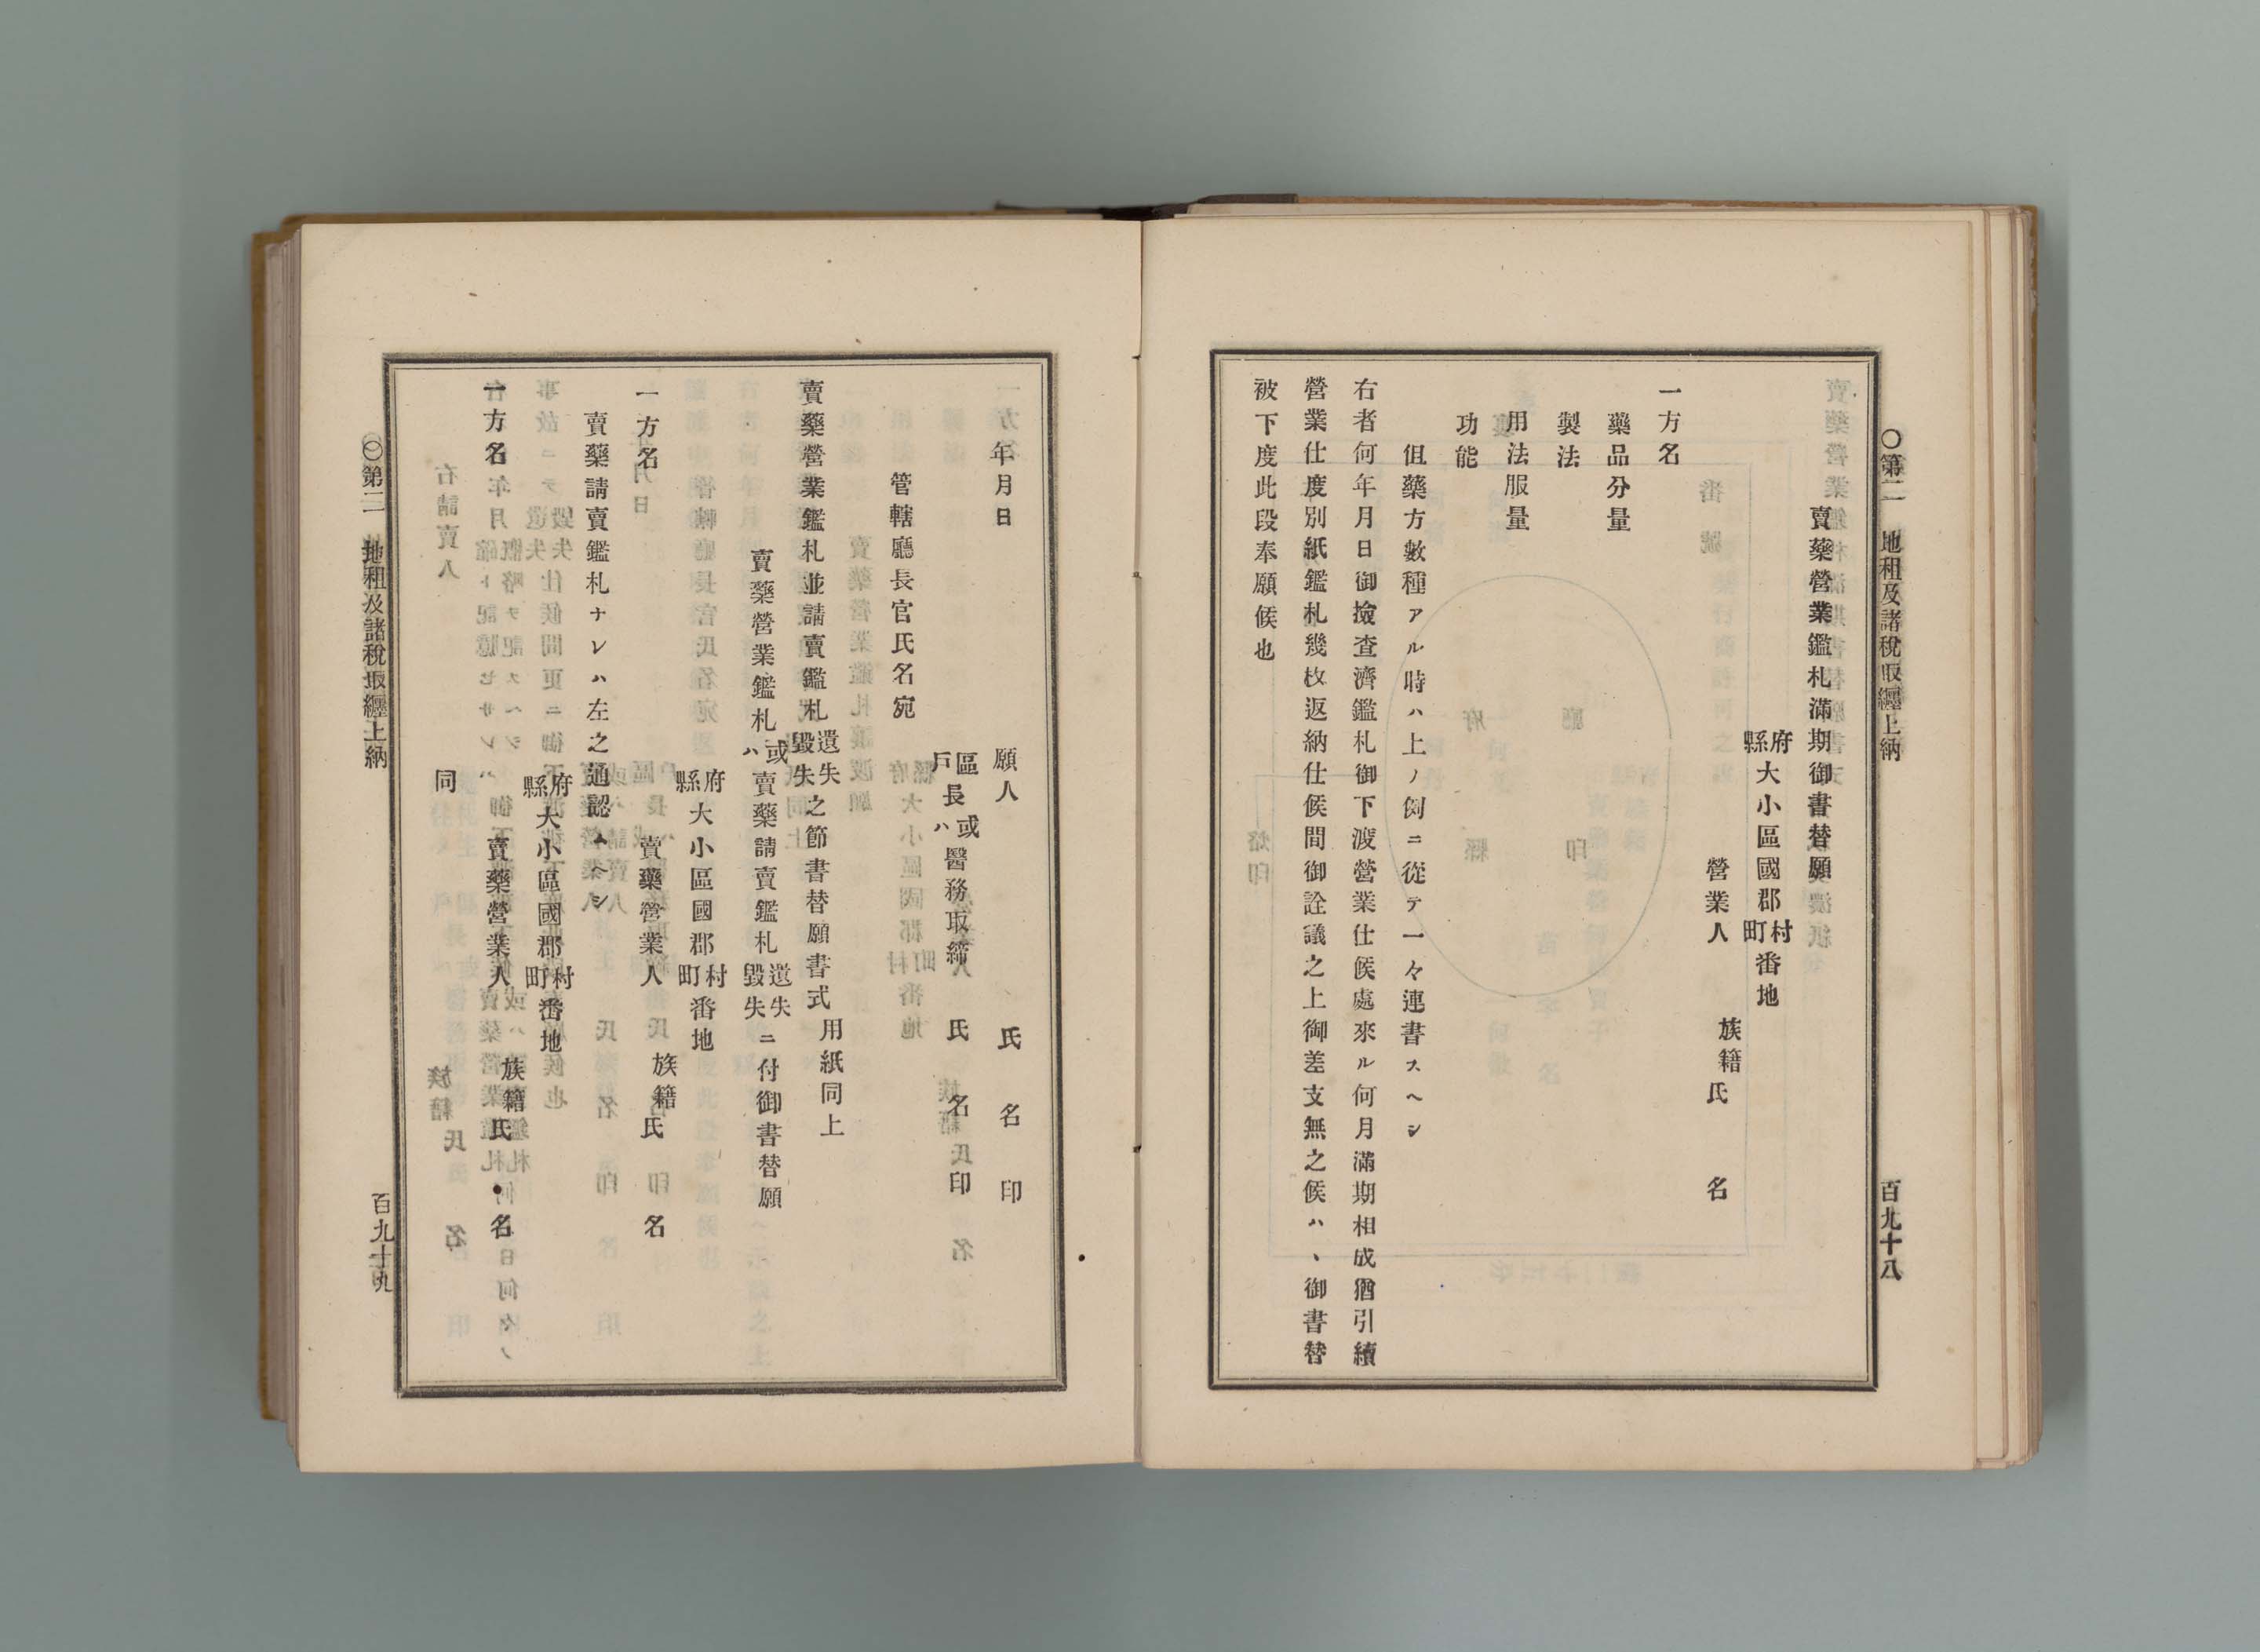 〇第二　地租及諸稅取纒上納　百九十八
賣藥營業鑑札滿期御書替願
府縣大小區國郡村町番地
營業人　族籍氏　名
一方名
藥品分量
製法
用法服量
功能
但藥方數種アル時ハ上ノ例ニ從テ一々連書スヘシ
右者何年月日御撿査濟鑑札御下渡營業仕候處來ル何月滿期相成猶引續
營業仕度別紙鑑札幾枚返納仕候間御詮議之上御差支無之候ハヽ御書替
被下度此段奉願候也
年月日　願人　氏　名　印
區戶長或ハ醫務取締　氏　名　印
管轄廳長官氏名宛
賣藥營業鑑札並請賣鑑札遺失毀失之節書替願書式　用紙同上
賣藥營業鑑札或ハ賣藥請賣鑑札遺失毀失ニ付御書替願
府縣大小區國郡村町番地
一方名　賣藥營業人　族籍氏　名
賣藥請賣鑑札ナレハ左之通認ムヘシ
府縣大小區國郡村町番地
一方名　賣藥營業人　族籍氏　名
同
〇第二　地租及諸稅取纒上納　百九十九